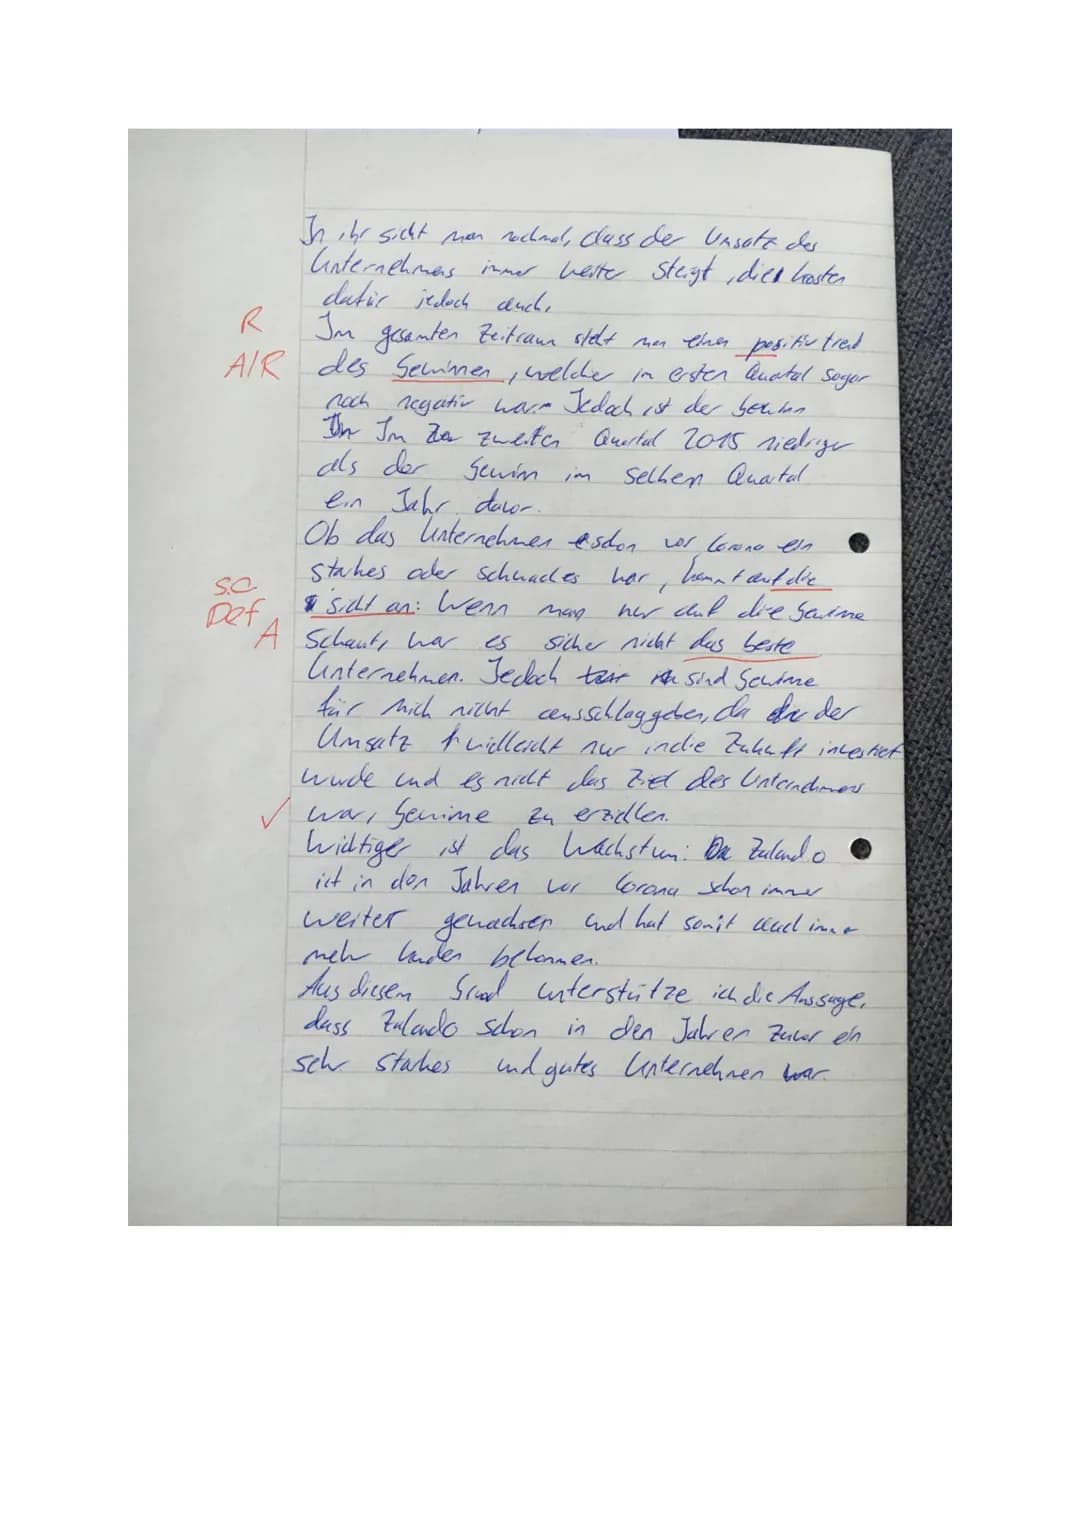 In ihr sieht man nochmal, dass der Umsatz des
Unternehmens immer weiter steigt, die Kosten
dafür jedoch auch.
R
Im gesamten Zeitraum sieht man einen positiv trend
A/R
des Gewinnen, welcher im ersten Quartal sogar
noch negativ war. Jedoch ist der Gewinn
Im zweiten Quartal 2015 niedriger
als der Gewinn im selben Quartal
ein Jahr davor.
Ob das Unternehmen schon vor Corona ein
starkes oder schwaches war, kommt auf die
s.o.
Def.
sicht an: Wenn man nur auf die Gewinne
A
schaut, war es sicher nicht das beste
Unternehmen. Jedoch sind Gewinne
für mich nicht ausschlaggeben, da der
Umsatz vielleicht nur in die Zukunft investiert
wurde und es nicht das Ziel des Unternehmens
✓ war, Gewinne zu erziehlen.
Wichtiger ist das Wachstum: Zalando
ist in den Jahren vor Corona schon immer
weiter gewachsen und hat somit auch immer
mehr Kunden bekommen.
Aus diesem Grund unterstütze ich die Aussage,
dass Zalando schon in den Jahren zuvor ein
sehr starkes und gutes Unternehmen war.